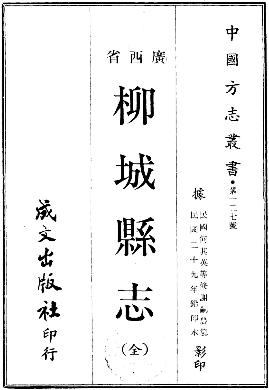 中國方志叢書・第一二七號
據
民國何其英等修謝嗣農纂
民國二十九年鉛印本
影印
廣西省
柳城縣志
(全)
成文出版社印行